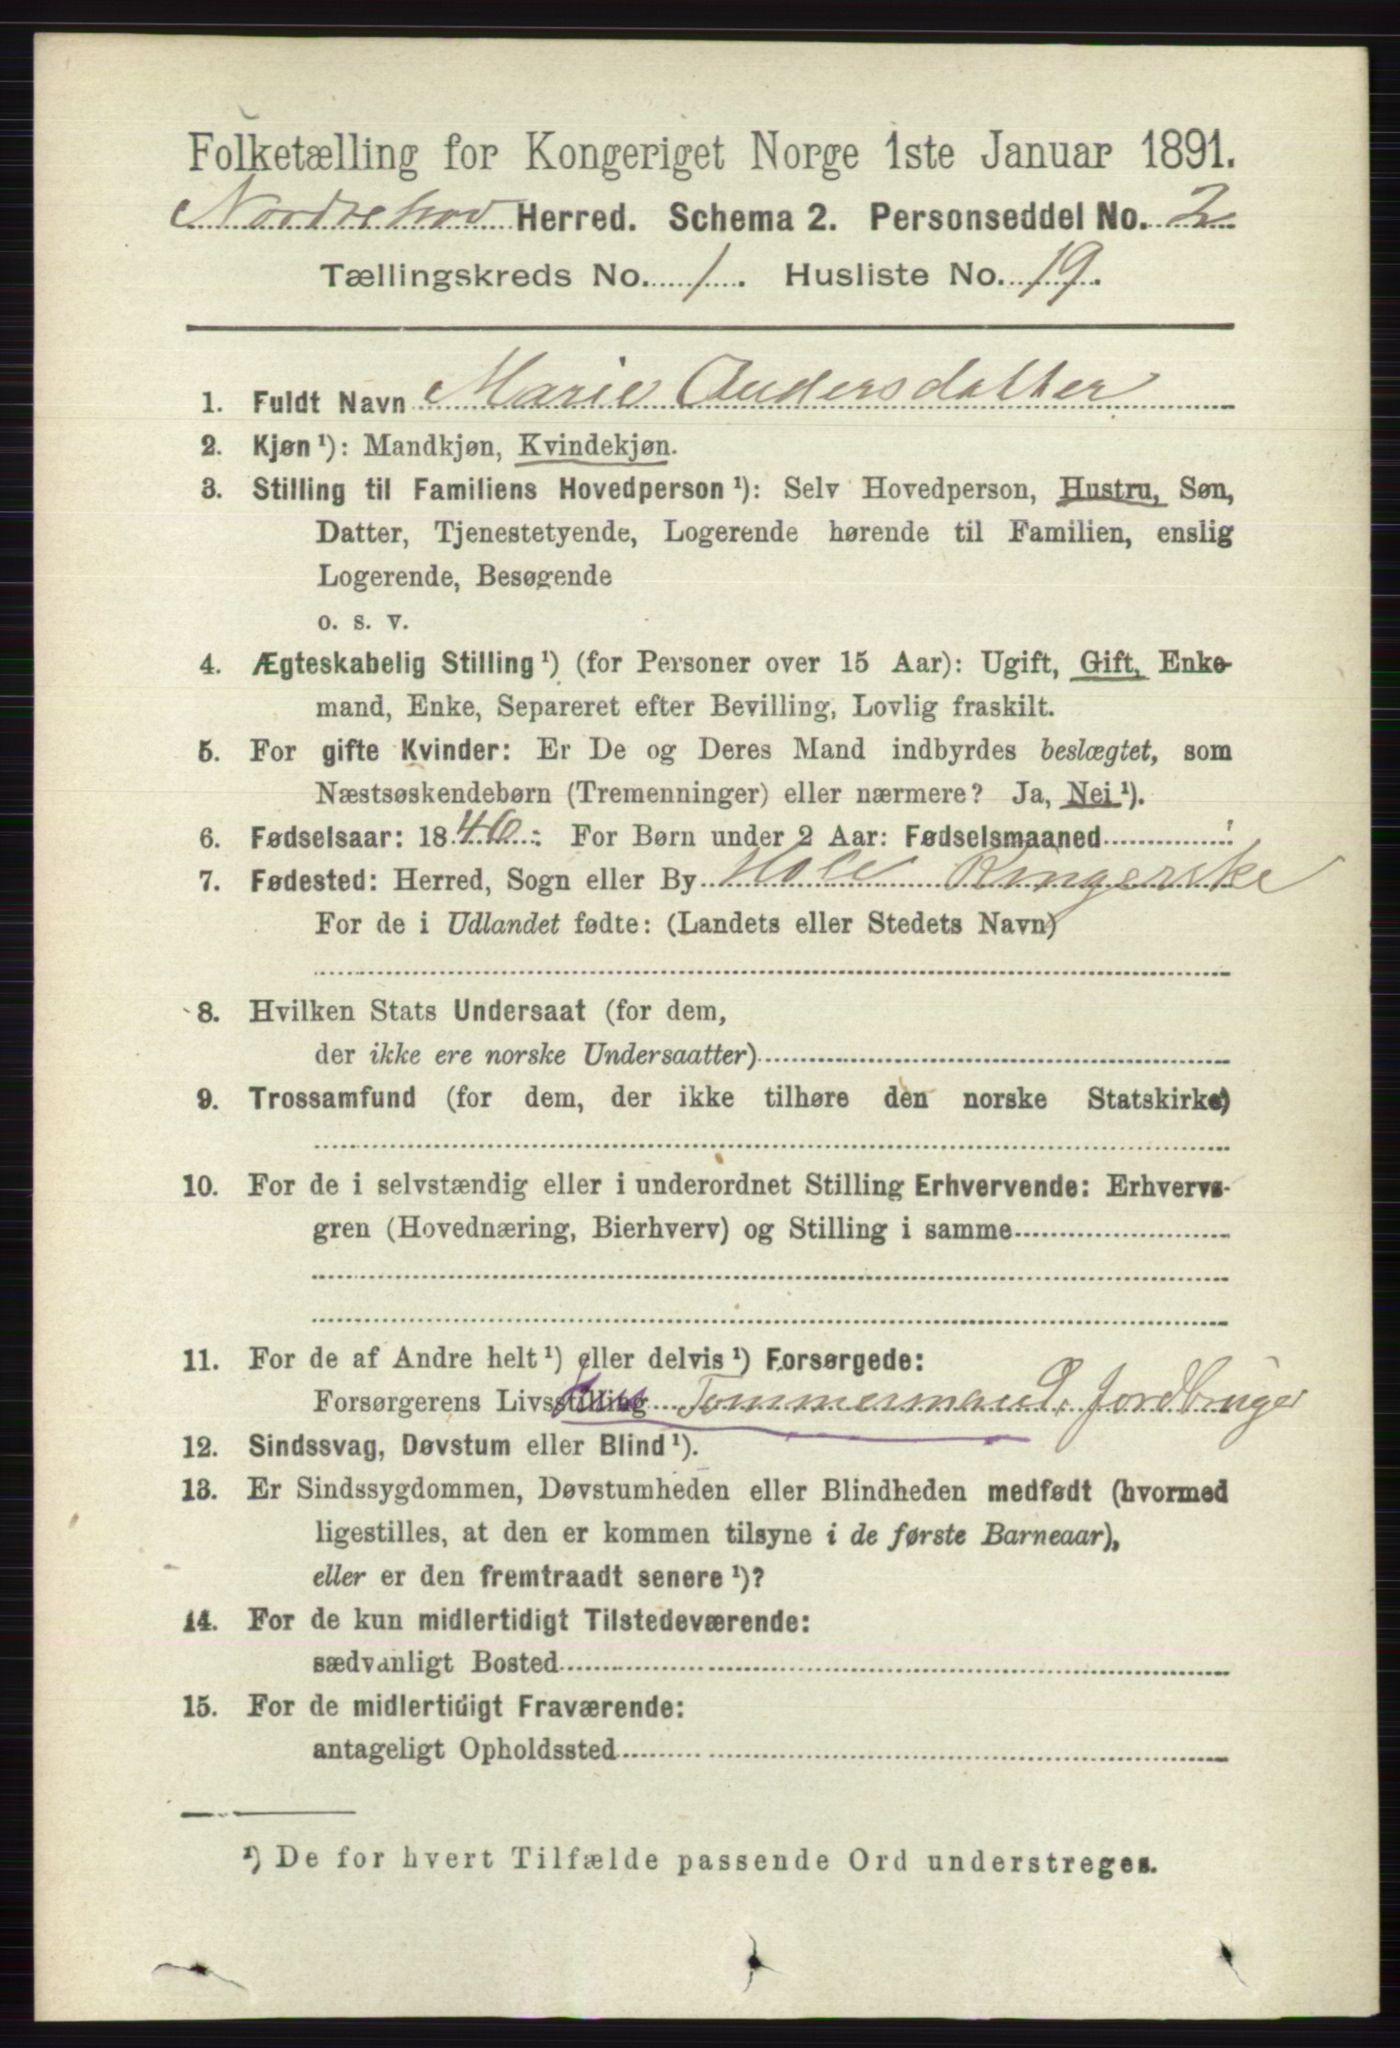 Folketælling for Kongeriget Norge 1ste Januar 1891.
Norderhov Herred. Schema 2. Personseddel No. 2
Tællingskreds No. 1. Husliste No. 19.
1. Fuldt Navn Marie Andersdatter
2. Kjøn ¹): Mandkjøn, Kvindekjøn.
3. Stilling til Familiens Hovedperson ¹): Selv Hovedperson, Hustru, Søn,
Datter, Tjenestetyende, Logerende hørende til Familien, enslig
Logerende, Besøgende
o. s. v.
4. Ægteskabelig Stilling ¹) (for Personer over 15 Aar): Ugift, Gift, Enke-
mand, Enke, Separeret efter Bevilling, Lovlig fraskilt.
5. For gifte Kvinder: Er De og Deres Mand indbyrdes beslægtet, som
Næstsøskendebørn (Tremenninger) eller nærmere? Ja, Nei ¹).
6. Fødselsaar: 1846. For Børn under 2 Aar: Fødselsmaaned
7. Fødested: Herred, Sogn eller By Hole Ringerike
For de i Udlandet fødte: (Landets eller Stedets Navn)
8. Hvilken Stats Undersaat (for dem,
der ikke ere norske Undersaatter)
9. Trossamfund (for dem, der ikke tilhøre den norske Statskirke)
10. For de i selvstændig eller i underordnet Stilling Erhvervende: Erhvervs-
gren (Hovednæring, Bierhverv) og Stilling i samme
11. For de af Andre helt ¹) eller delvis ¹) Forsørgede:
Forsørgerens Livsstilling Tommermand, Jordbruger
12. Sindssvag, Døvstum eller Blind ¹).
13. Er Sindssygdommen, Døvstumheden eller Blindheden medfødt (hvormed
ligestilles, at den er kommen tilsyne i de første Barneaar),
eller er den fremtraadt senere ¹)?
14. For de kun midlertidigt Tilstedeværende:
sædvanligt Bosted
15. For de midlertidigt Fraværende:
antageligt Opholdssted
¹) De for hvert Tilfælde passende Ord understreges.